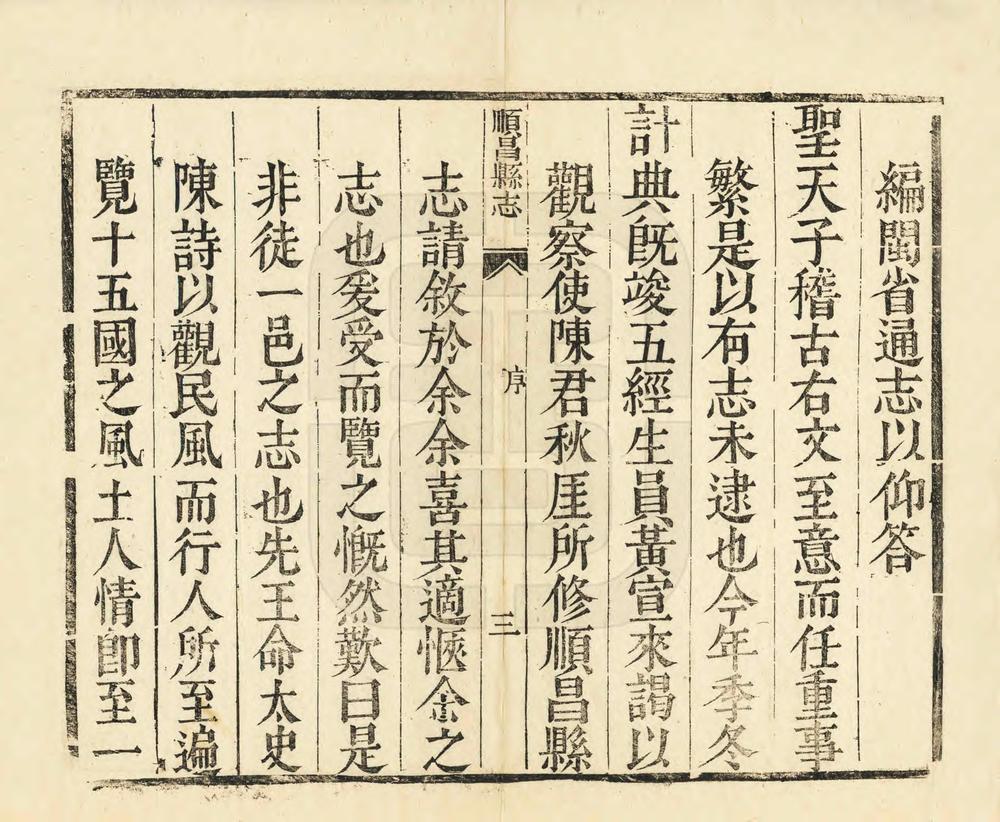 編閩省通志以仰答
聖天子稽古右文至意而任重事
繁是以有志未逮也今年季冬
計典旣竣五經生員黃宣來謁以
觀察使陳君秋厓所修順昌縣
順昌縣志 序 三
志請敘於余余喜其適愜余之
志也爰受而覽之慨然歎曰是
非徒一邑之志也先王命太史
陳詩以觀民風而行人所至遍
覽十五國之風土人情卽至一